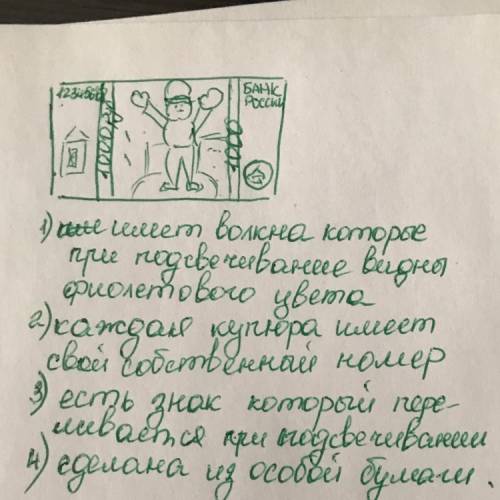 12345678
1000 руб
1000
БАНК
РОССИИ
1) имет волкна которые
при подсвечивание видны
фиолетового цвета
2) каждая купюра имеет
свой собственный номер
3) есть знак который пере-
ливается при подсвечивании
4) сделана из особой бумаги.